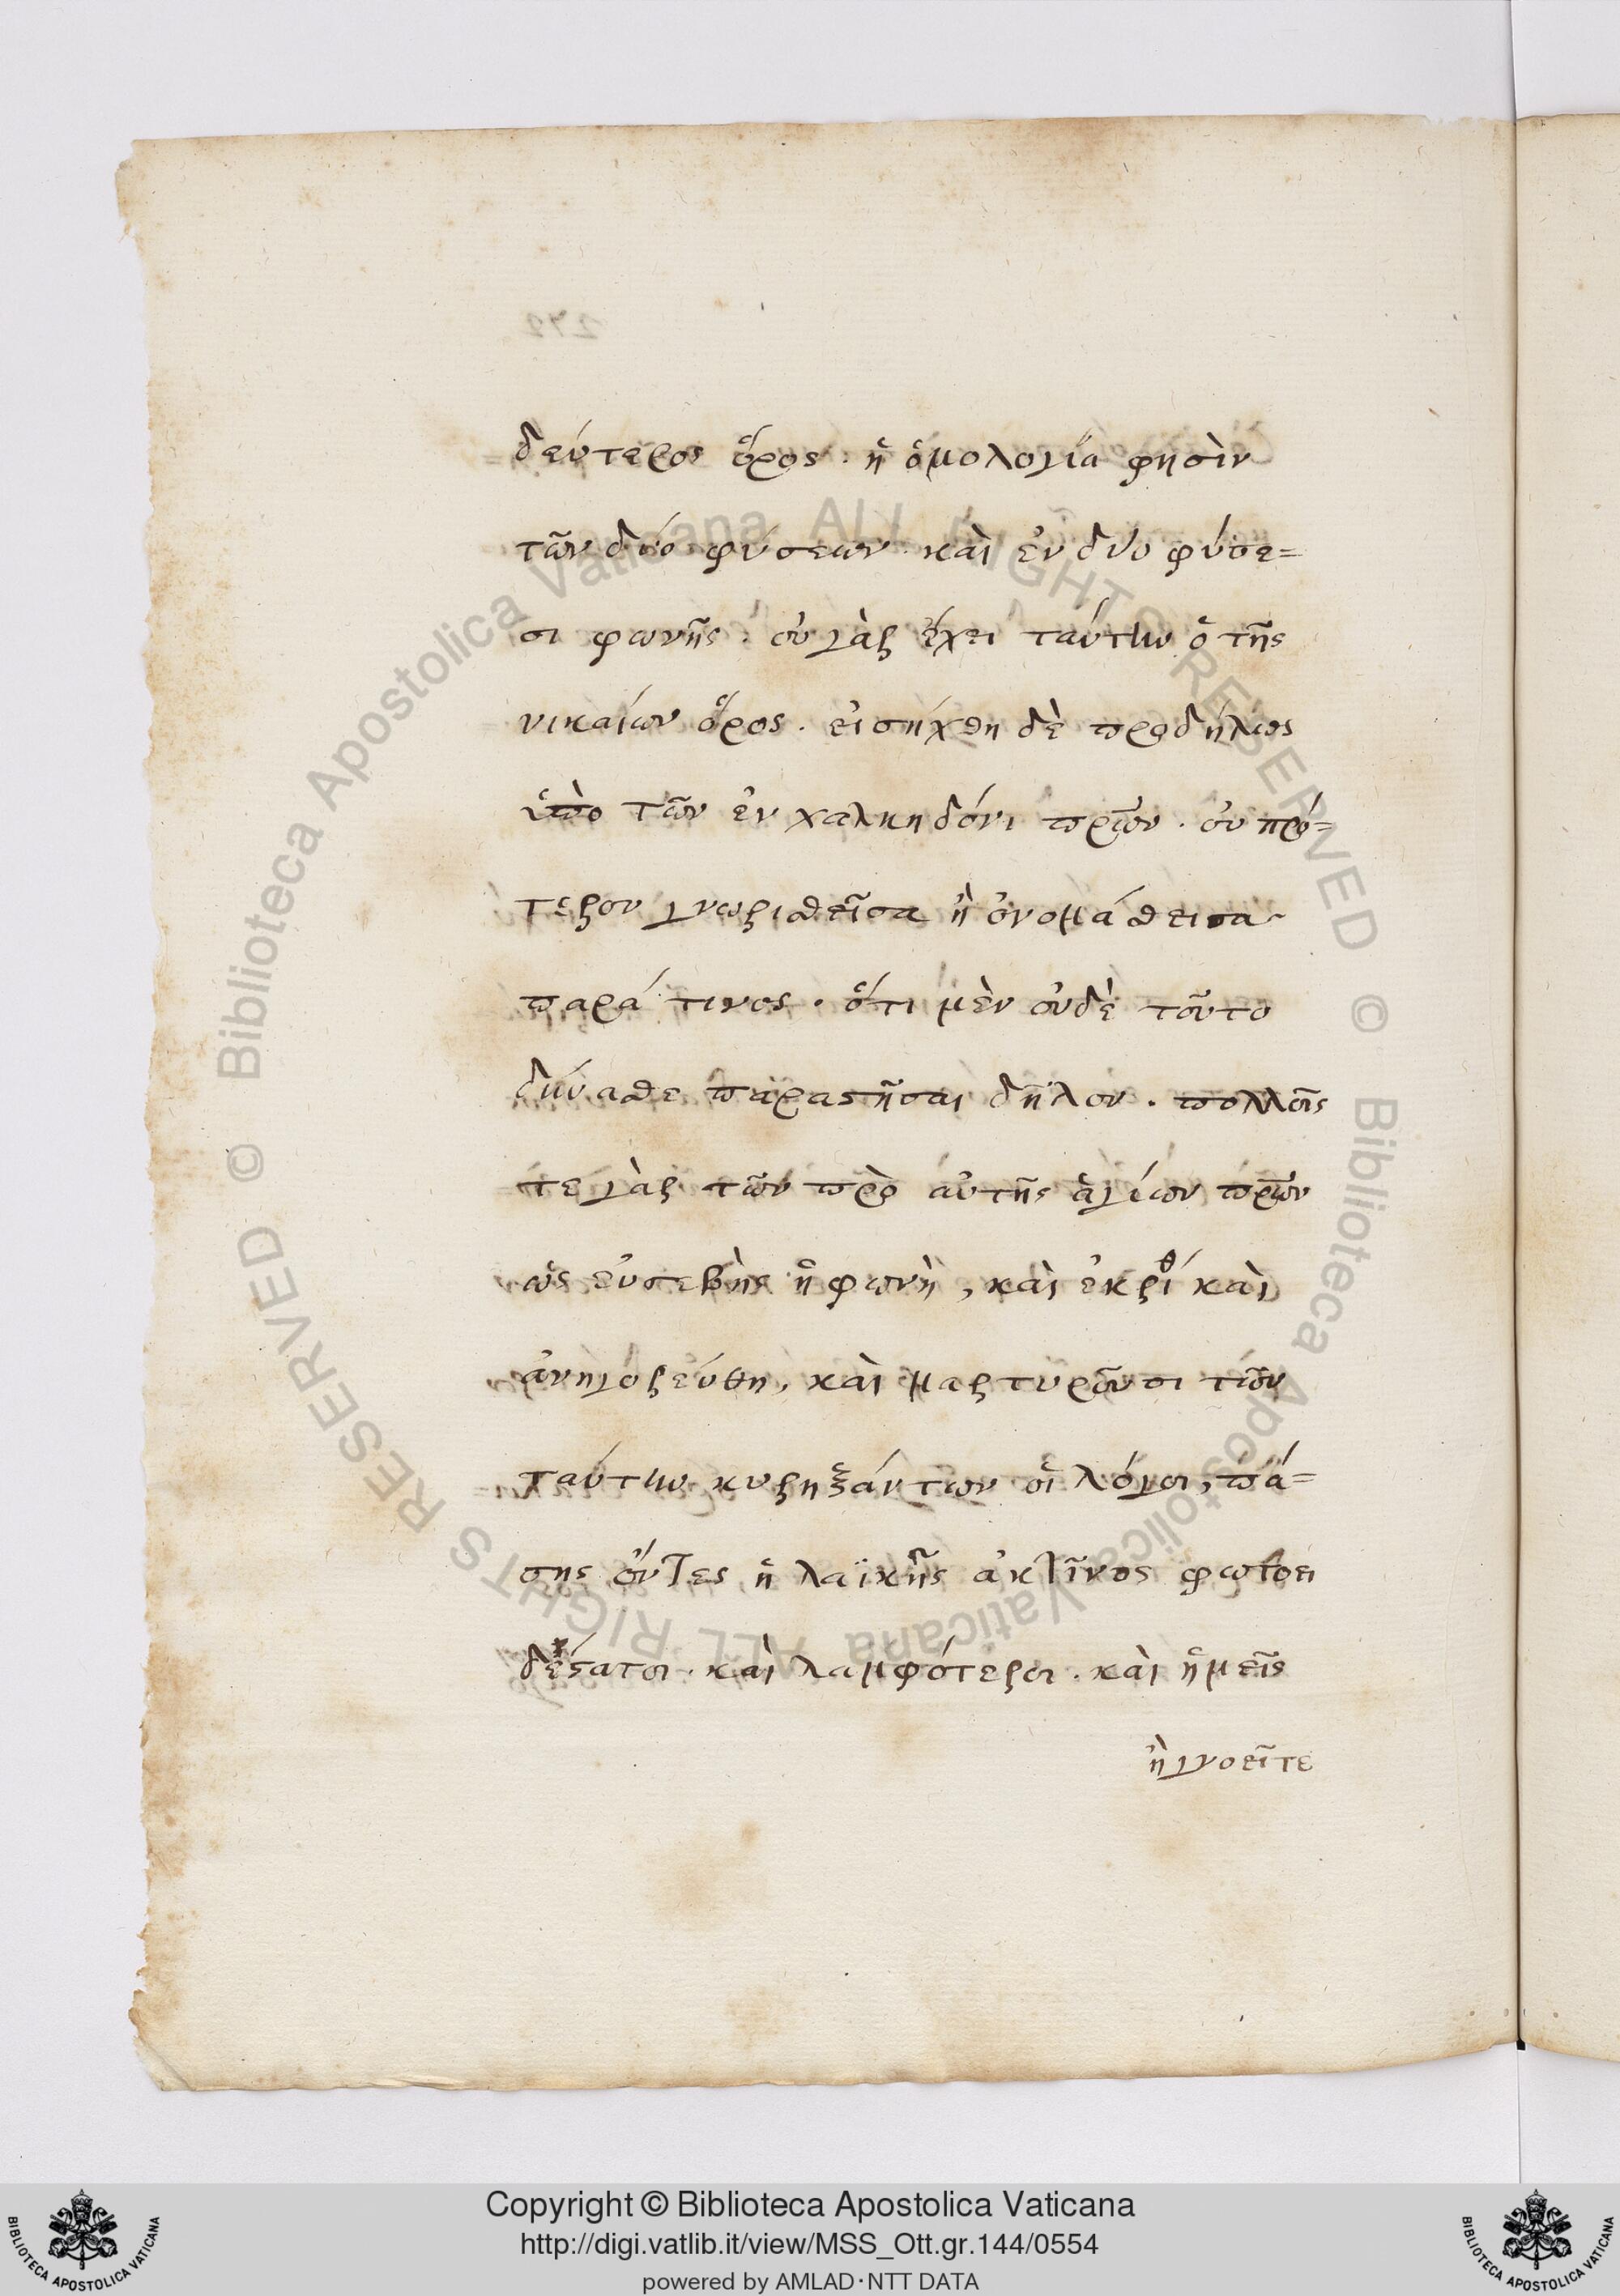 δεύτερος ὅρος · ἡ ὁμολογία φησὶν
τῶν δύο φύσεων · καὶ ἐν δύο φύσε=
σι φωνῆς · οὐ γὰρ ἔχει ταύτην ὁ τῆς
νικαίων ὅρος · εἰσήχθη δὲ προδήλως
ὑπὸ τῶν ἐν χαλκηδόνι πρων · οὐ πρό=
τερον γνωρισθεῖσα ἢ ὀνομάσθεισα
παρά τινος · ὅτι μὲν οὐδὲ τοῦτο
δύνασθε παραστῆσαι δῆλον · πολλοῖς
τε γὰρ τῶν πρὸ αὐτῆς ἁγίων πρων
ὡς εὐσεβὴς ἡ φωνὴ, καὶ ἐκρίθ καὶ
ἀνηγορεύθη, καὶ μαρτυροῦσι τῶν
ταύτην κυρηξάντων οἱ λόγοι, πά=
σης ὄντες ἡλαϊκῆς ἀκτῖνος φωτοει
δέστατοι · καὶ λαμφότεροι · καὶ ἡμεῖς
ἠγνοεῖτε
272
Copyright © Biblioteca Apostolica Vaticana
http://digi.vatlib.it/view/MSS_Ott.gr.144/0554
powered by AMLAD·NTT DATA
BIBLIOTECA APOSTOLICA VATICANA
BIBLIOTECA APOSTOLICA VATICANA
© Biblioteca Apostolica Vaticana ALL RIGHTS RESERVED © Biblioteca Apostolica Vaticana ALL RIGHTS RESERVED